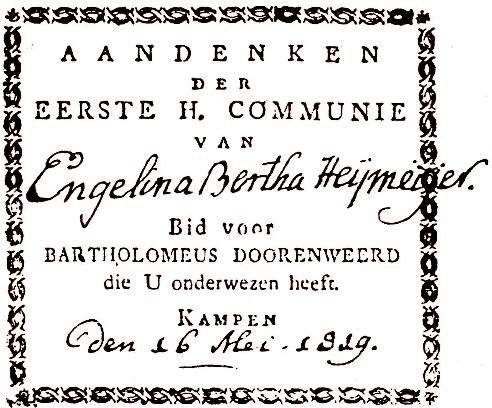 AANDENKEN
DER
EERSTE H. COMMUNIE
VAN
Engelina Bertha Heijmeijer.
Bid voor
BARTHOLOMEUS DOORENWEERD
die U onderwezen heeft.
KAMPEN
den 16 Mei. 1819.